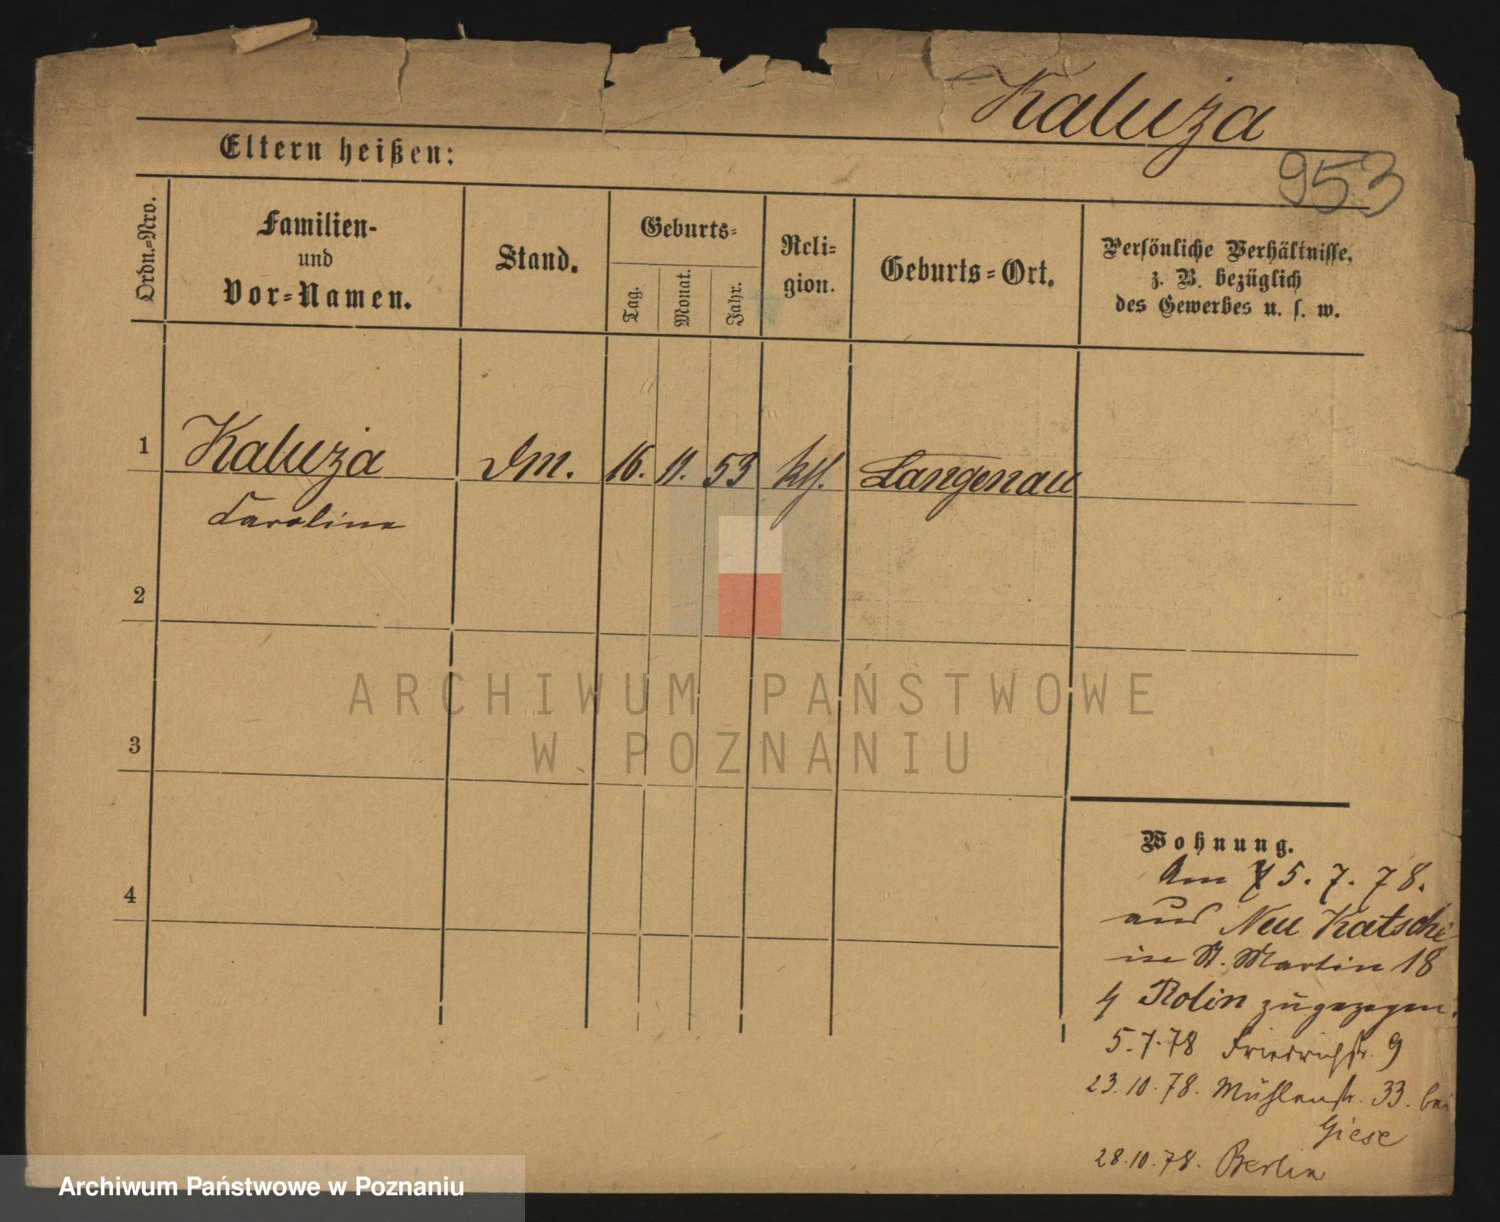 Kaluża
953
Eltern heißen:
Ordn.=Nro.
Familien-
und
Vor=Namen.
Stand.
Geburts=
Tag.
Monat.
Jahr.
Reli=
gion.
Geburts=Ort.
Persönliche Verhältnisse,
z. B. bezüglich
des Gewerbes u. s. w.
1
Kaluża
Caroline
Dm.
16. 11. 53
kth.
Langenau
2
3
4
ARCHIWUM PAŃSTWOWE
W POZNANIU
Wohnung.
Am 5. 7. 78.
aus Neu Katsche
in St. Martin 18
Rolin zugezogen.
5.7.78 Friedrichstr. 9
23.10.78. Mühlenstr. 33. bei
Giese
28.10.78. Berlin
Archiwum Państwowe w Poznaniu